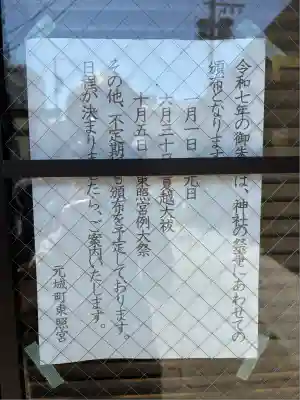 令和七年の御朱印は、神社の祭事にあわせての
頒布となります。
一月一日 元日
六月三十日 夏越大祓
十月五日 東照宮例大祭
その他、不定期にも頒布を予定しております。
日程が決まりましたら、ご案内いたします。
元城町東照宮